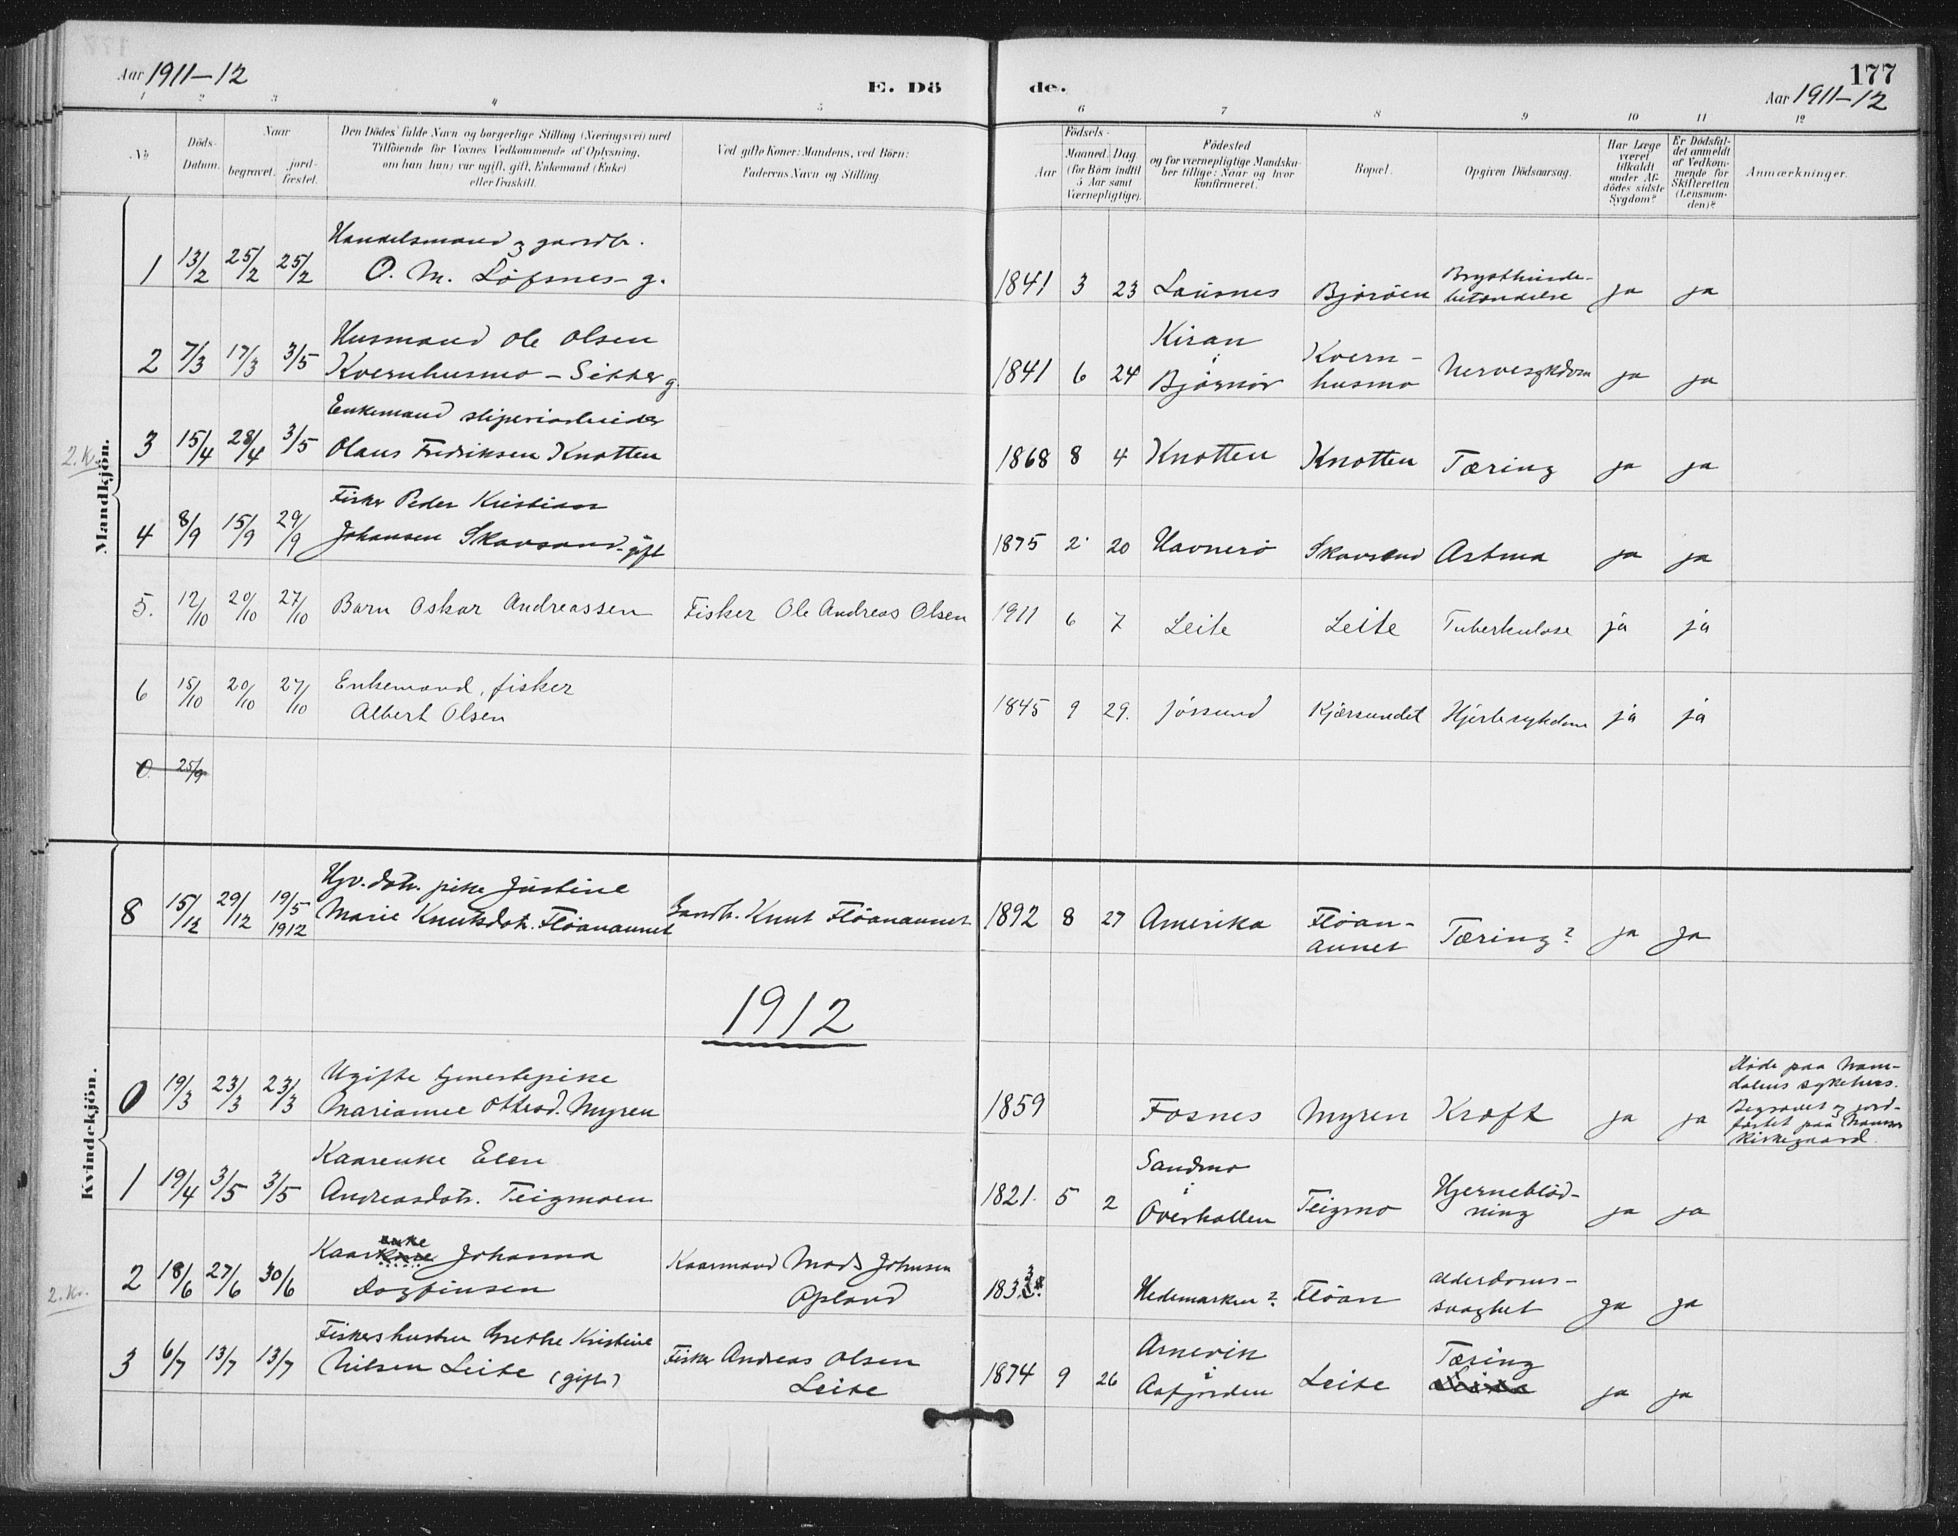 Aar 1911–12
E. Dö
de.
177
Aar 1911–12
1 2 3 4 5 6 7 8 9 10 11 12
No
Döds-
Datum.
Naar
begravet.
jord-
fæstet.
Den Dödes' fulde Navn og borgerlige Stilling (Næringsvei) med
Tilföiende for Voxnes Vedkommende af Oplysning,
om han (hun) var ugift, gift, Enkemand (Enke)
eller fraskilt.
Ved gifte Koner: Mandens, ved Börn:
Faderens Navn og Stilling.
Födsels-
Aar
Maaned. Dag
(for Börn indtil
5 Aar samt
Værnepligtige).
Födested
og for værnepligtige Mandska-
ber tillige: Naar og hvor
konfirmeret.
Bopæl.
Opgiven Dödsaarsag.
Har Læge
været
tilkaldt
under Af-
dödes sidste
Sygdom?
Er Dödsfal-
det anmeldt
af Vedkom-
mende for
Skifteretten
(Lensman-
den)?
Anmærkninger.
Mandkjön.
1 13/2 25/2 25/2 Handelsmand og gaardbr.
O. M. Löfsnes – g.
1841 3 23 Lausnes Björöen Brysthinde-
betændelse ja ja
2 7/3 17/3 3/5 Husmand Ole Olsen
Kvernhusmo – Sitter g.
1841 6 24 Kiran
i
Bjørnør Kvern-
husmo Nervesykdom ja ja
2. Kv.
3 15/4 28/4 3/5 Enkemand sliperiarbeider
Olaus Fredriksen Knotten
1868 8 4 Knotten Knotten Tæring ja ja
4 8/9 15/9 29/9 Fisker Peder Kristian
Johansen Skavsand – gift
1875 2 20 Havnerö Skavsand Astma ja ja
5. 12/10 20/10 27/10 Barn Oskar Andreassen Fisker Ole Andreas Olsen 1911 6 7 Leite Leite Tuberkulose ja ja
6 15/10 20/10 27/10 Enkemand, fisker
Albert Olsen
1845 9 29. Jössund Kjærsundet Hjertesykdom ja ja
0. 25/9
Kvindekjön.
8 15/12 29/12 19/5
1912 Hjv. datr. pike Justine
Marie Knutsdatr. Flöanaunet Gaardbr. Knut Flöanaunet 1892 8 27 Amerika Flöan-
aunet Tæring? ja ja
1912
0 19/3 23/3 23/3 Ugifte tjenestepike
Marianne Ottesd. Myren
1859 Fosnes Myren Kræft ja ja
Döde paa Nam-
dalens sykehus.
Begravet og jord-
fæstet paa Namsos
kirkegaard.
1 19/4 3/5 3/5 Kaarenke Elen
Andreasdatr. Teigmoen
1821. 5 2 Sandmo
i
Overhallen Teigmo Hjerneblöd-
ning ja ja
2. Kv.
2 18/6 27/6 30/6 Kaarkone enke Johanna
Dagfinsen Kaarmand Mads Johnsen
Opland
183 Hedemarken? Flöan Alderdoms-
svaghet ja ja
3 6/7 13/7 13/7 Fiskers hustru Grethe Kristine
Nilsen Leite (gift) Fisker Andreas Olsen
Leite
1874 9 26 Arnevik
i
Aafjorden Leite Tæring
Leite ja ja